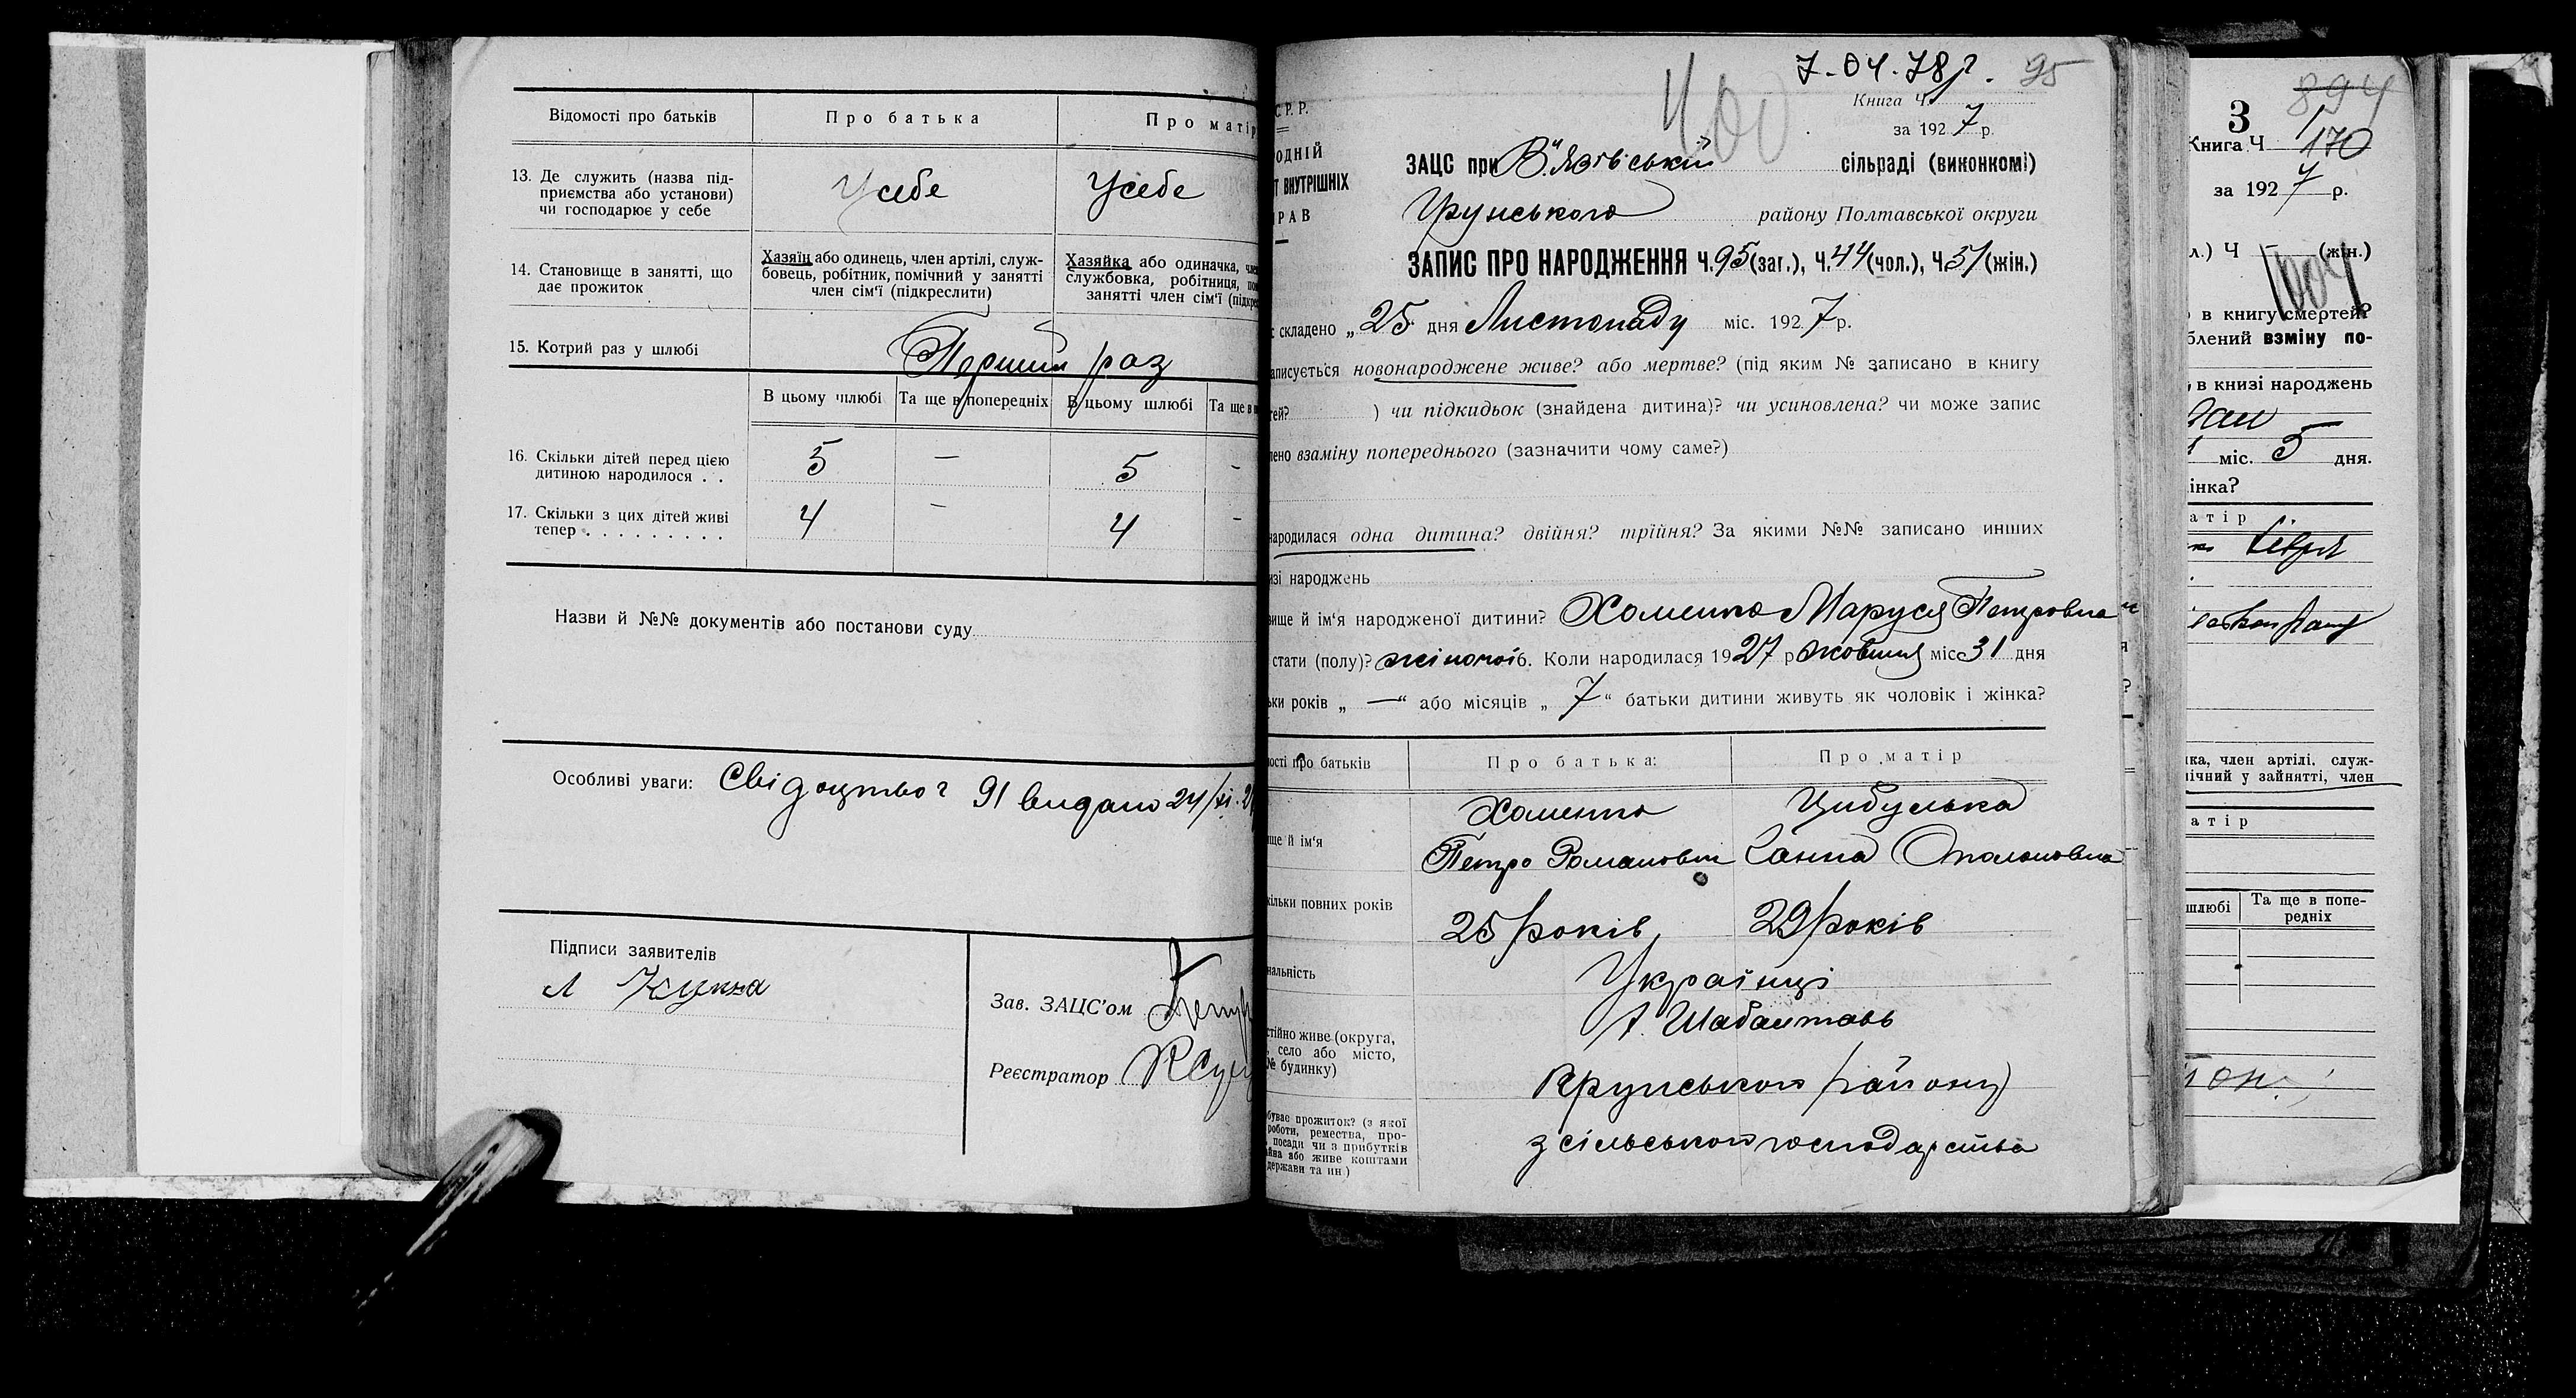 Відомості про батьків
Про батька
Про матір
13. Де служить (назва під-
приємства або установи)
чи господарює у себе
У себе
У себе
14. Становище в занятті, що
дає прожиток
Хазяїн або одинець, член артілі, служ-
бовець, робітник, помічний у занятті
член сім'ї (підкреслити)
Хазяйка або одиначка,
службовка, робітниця,
занятті член сім'ї
15. Котрий раз у шлюбі
Перший раз
В цьому шлюбі
Та ще в попередніх
В цьому шлюбі
Та ще в
16. Скільки дітей перед цією
дитиною народилося . .
5 — 5 -
17. Скільки з цих дітей живі
тепер . . . . . . . . .
4 — 4 -
Назви й №№ документів або постанови суду
Особливі уваги: Свідоцтво г 91 видано 24/XI.2
Підписи заявителів
Зав. ЗАЦС'ом
Реєстратор
7-04-78р. 95
400
С.Р.Р.
Книга Ч.
за 1927 р.
ОДНІЙ
Т ВНУТРІШНІХ
РАВ
ЗАЦС при В"язівській сільраді (виконкомі)
Грунського району Полтавської округи
ЗАПИС ПРО НАРОДЖЕННЯ Ч.95 (заг.), Ч.44 (чол.), Ч.51 (жін.)
складено „25 дня Листопаду міс. 1927 р.
аписується новонароджене живе? або мертве? (під яким № записано в книгу
тей? ) чи підкидьок (знайдена дитина)? чи усиновлена? чи може запис
лено взаміну попереднього (зазначити чому саме?)
народилася одна дитина? двійня? трійня? За якими №№ записано инших
изі народжень
вище й ім'я народженої дитини? Хоменко Маруся Петровна
стати (полу)? жіночої 6. Коли народилася 1927 р жовтня міс 31 дня
ьки років „ — “ або місяців „ 7 “ батьки дитини живуть як чоловік і жінка?
мості про батьків
Про батька:
Про матір
ще й ім'я
Хоменко
Петро Романович
Цибулька
Ганна
кільки повних років
25 років
29 років
нальність
Українці
стійно живе (округа,
село або місто,
№ будинку)
х.
Крунського району
буває прожиток? (з якої
роботи, ремества, про-
посади чи з прибутків
айна або живе коштами
держави та ин.)
з сільського господарства
894
3
Книга Ч 1
170
за 1927 р.
л.) Ч (жін.)
1004
в книгу смертей?
блений взміну по-
в книзі народжень
міс. 5 дня.
інка?
атір
ка, член артілі, служ-
ічний у зайнятті, член
атір
шлюбі
Та ще в попе-
редніх